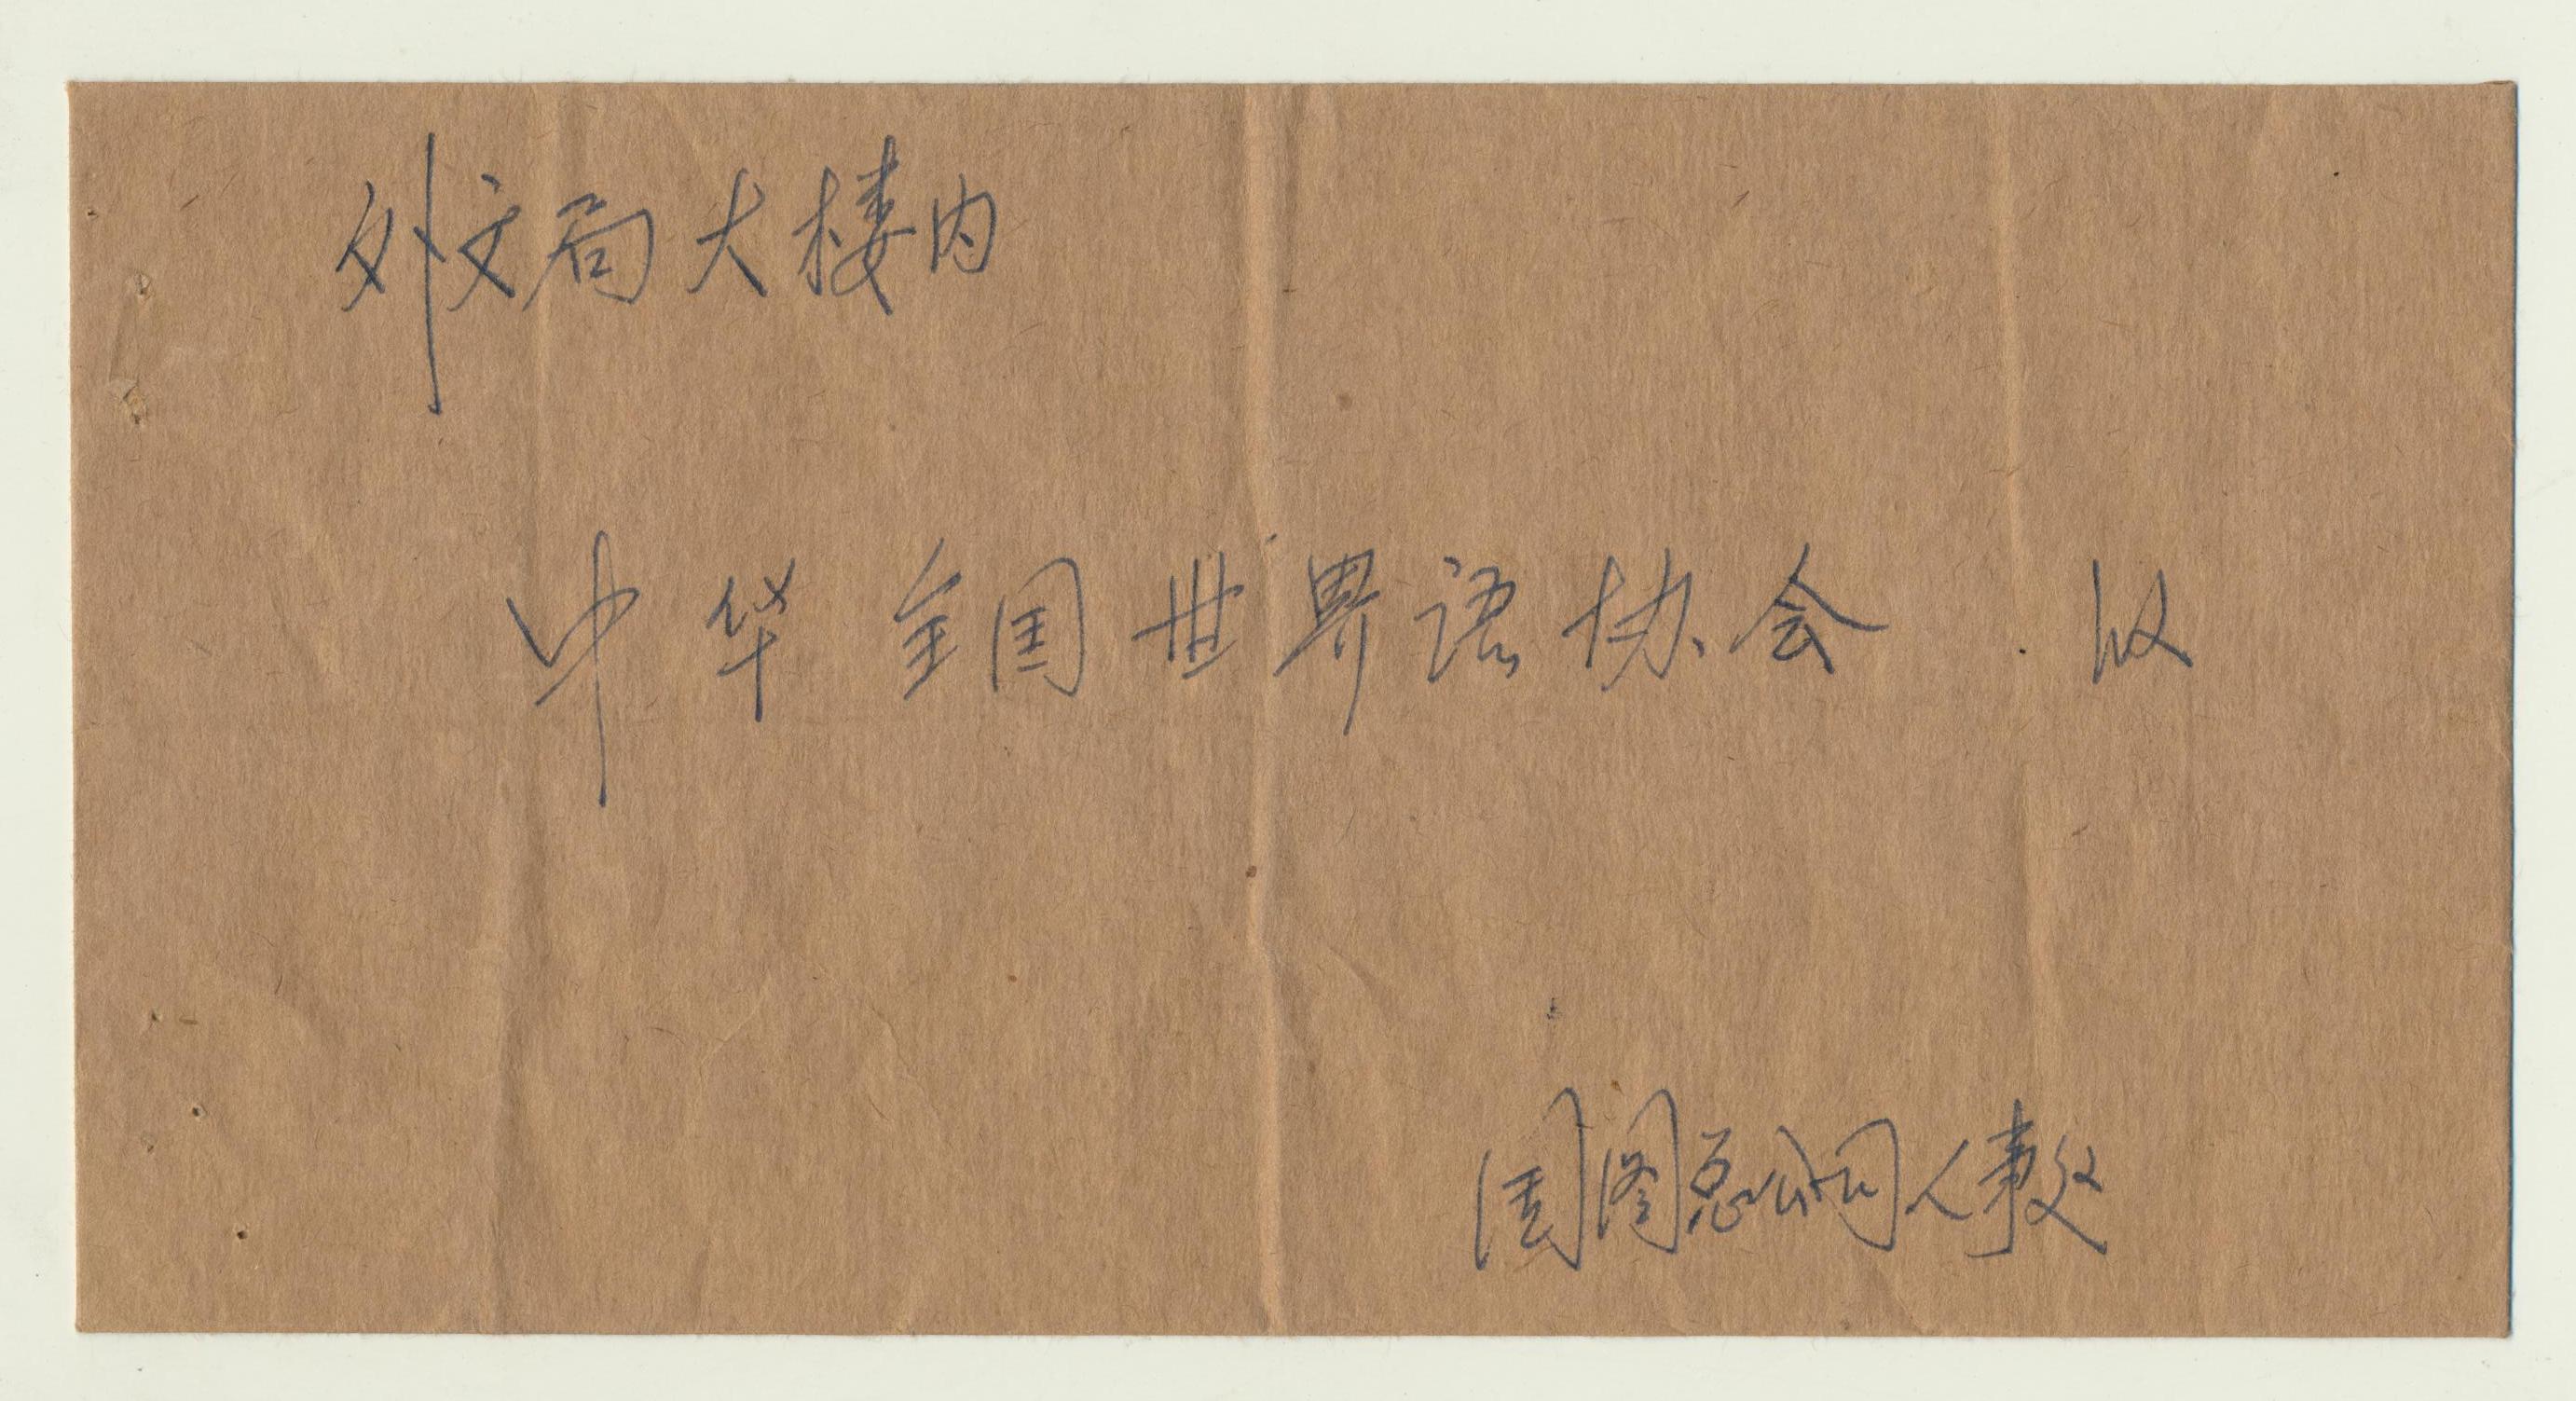 外文局大楼内
中华全国世界语协会 收
国图总公司人事处